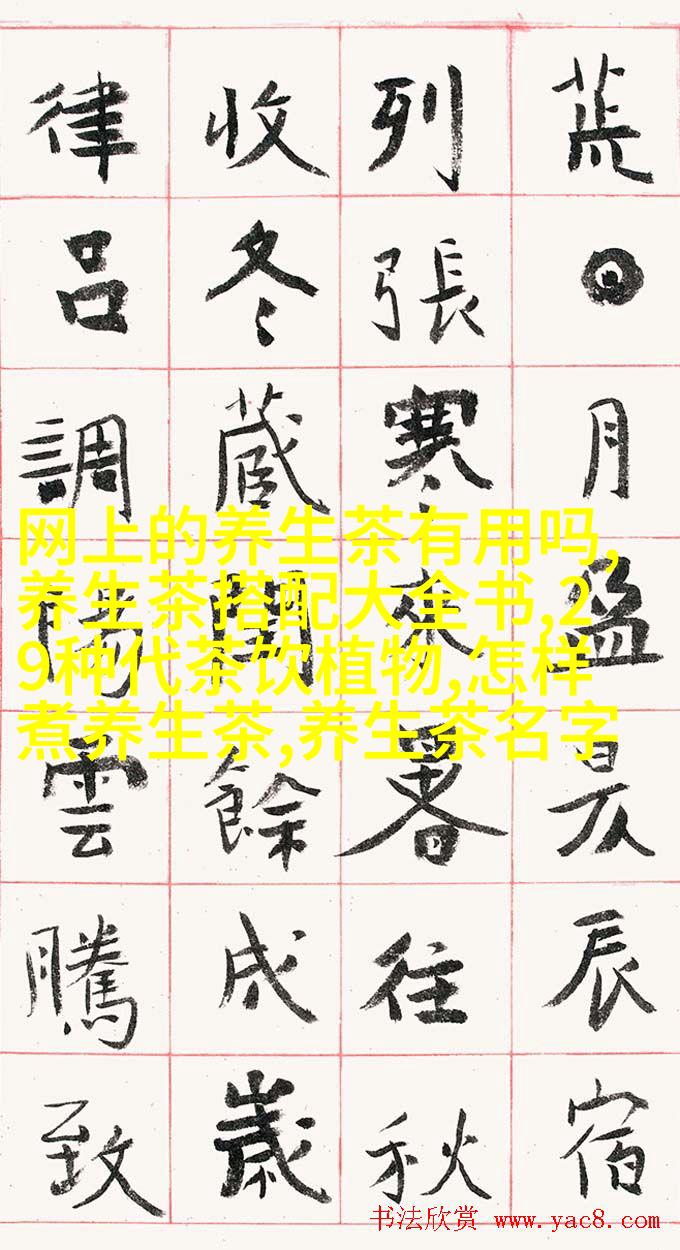 荒日月盈昃辰宿
列張寒來暑往秋
收冬藏閏餘成歲
律呂調陽雲騰致
网上的养生茶有用吗,
养生茶搭配大全书,2
9种代茶饮植物,怎样
煮养生茶,养生茶名字
书法欣赏 www.yac8.com